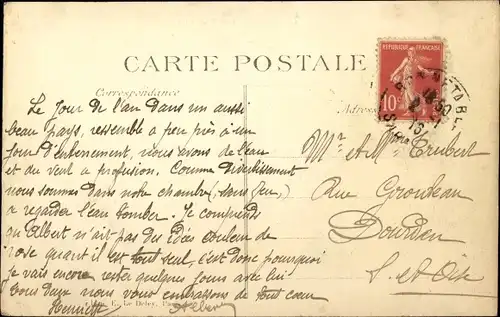 CARTE POSTALE
Correspondance
Adresse
RÉPUBLIQUE FRANÇAISE
10c
Le Jour de l'an dans un aussi
beau pays, ressemble a peu près à un
jour d'enterrement, nous avons de l'eau
et du vent a profusion. Comme divertissement
nous sommes dans notre chambre (sans feu,)
a regarder l'eau tomber. Je comprends
qu'Albert n'ait pas des idées couleur de
rose quant il est tout seul, c'est donc pourquoi
je vais encore rester quelques jours avec lui
Tous deux nous vous embrassons de tout cœur
Henriette Albert
E. Le Deley, Paris
Mr et Mme Trubert
Rue
Dourdan
S. et Oise